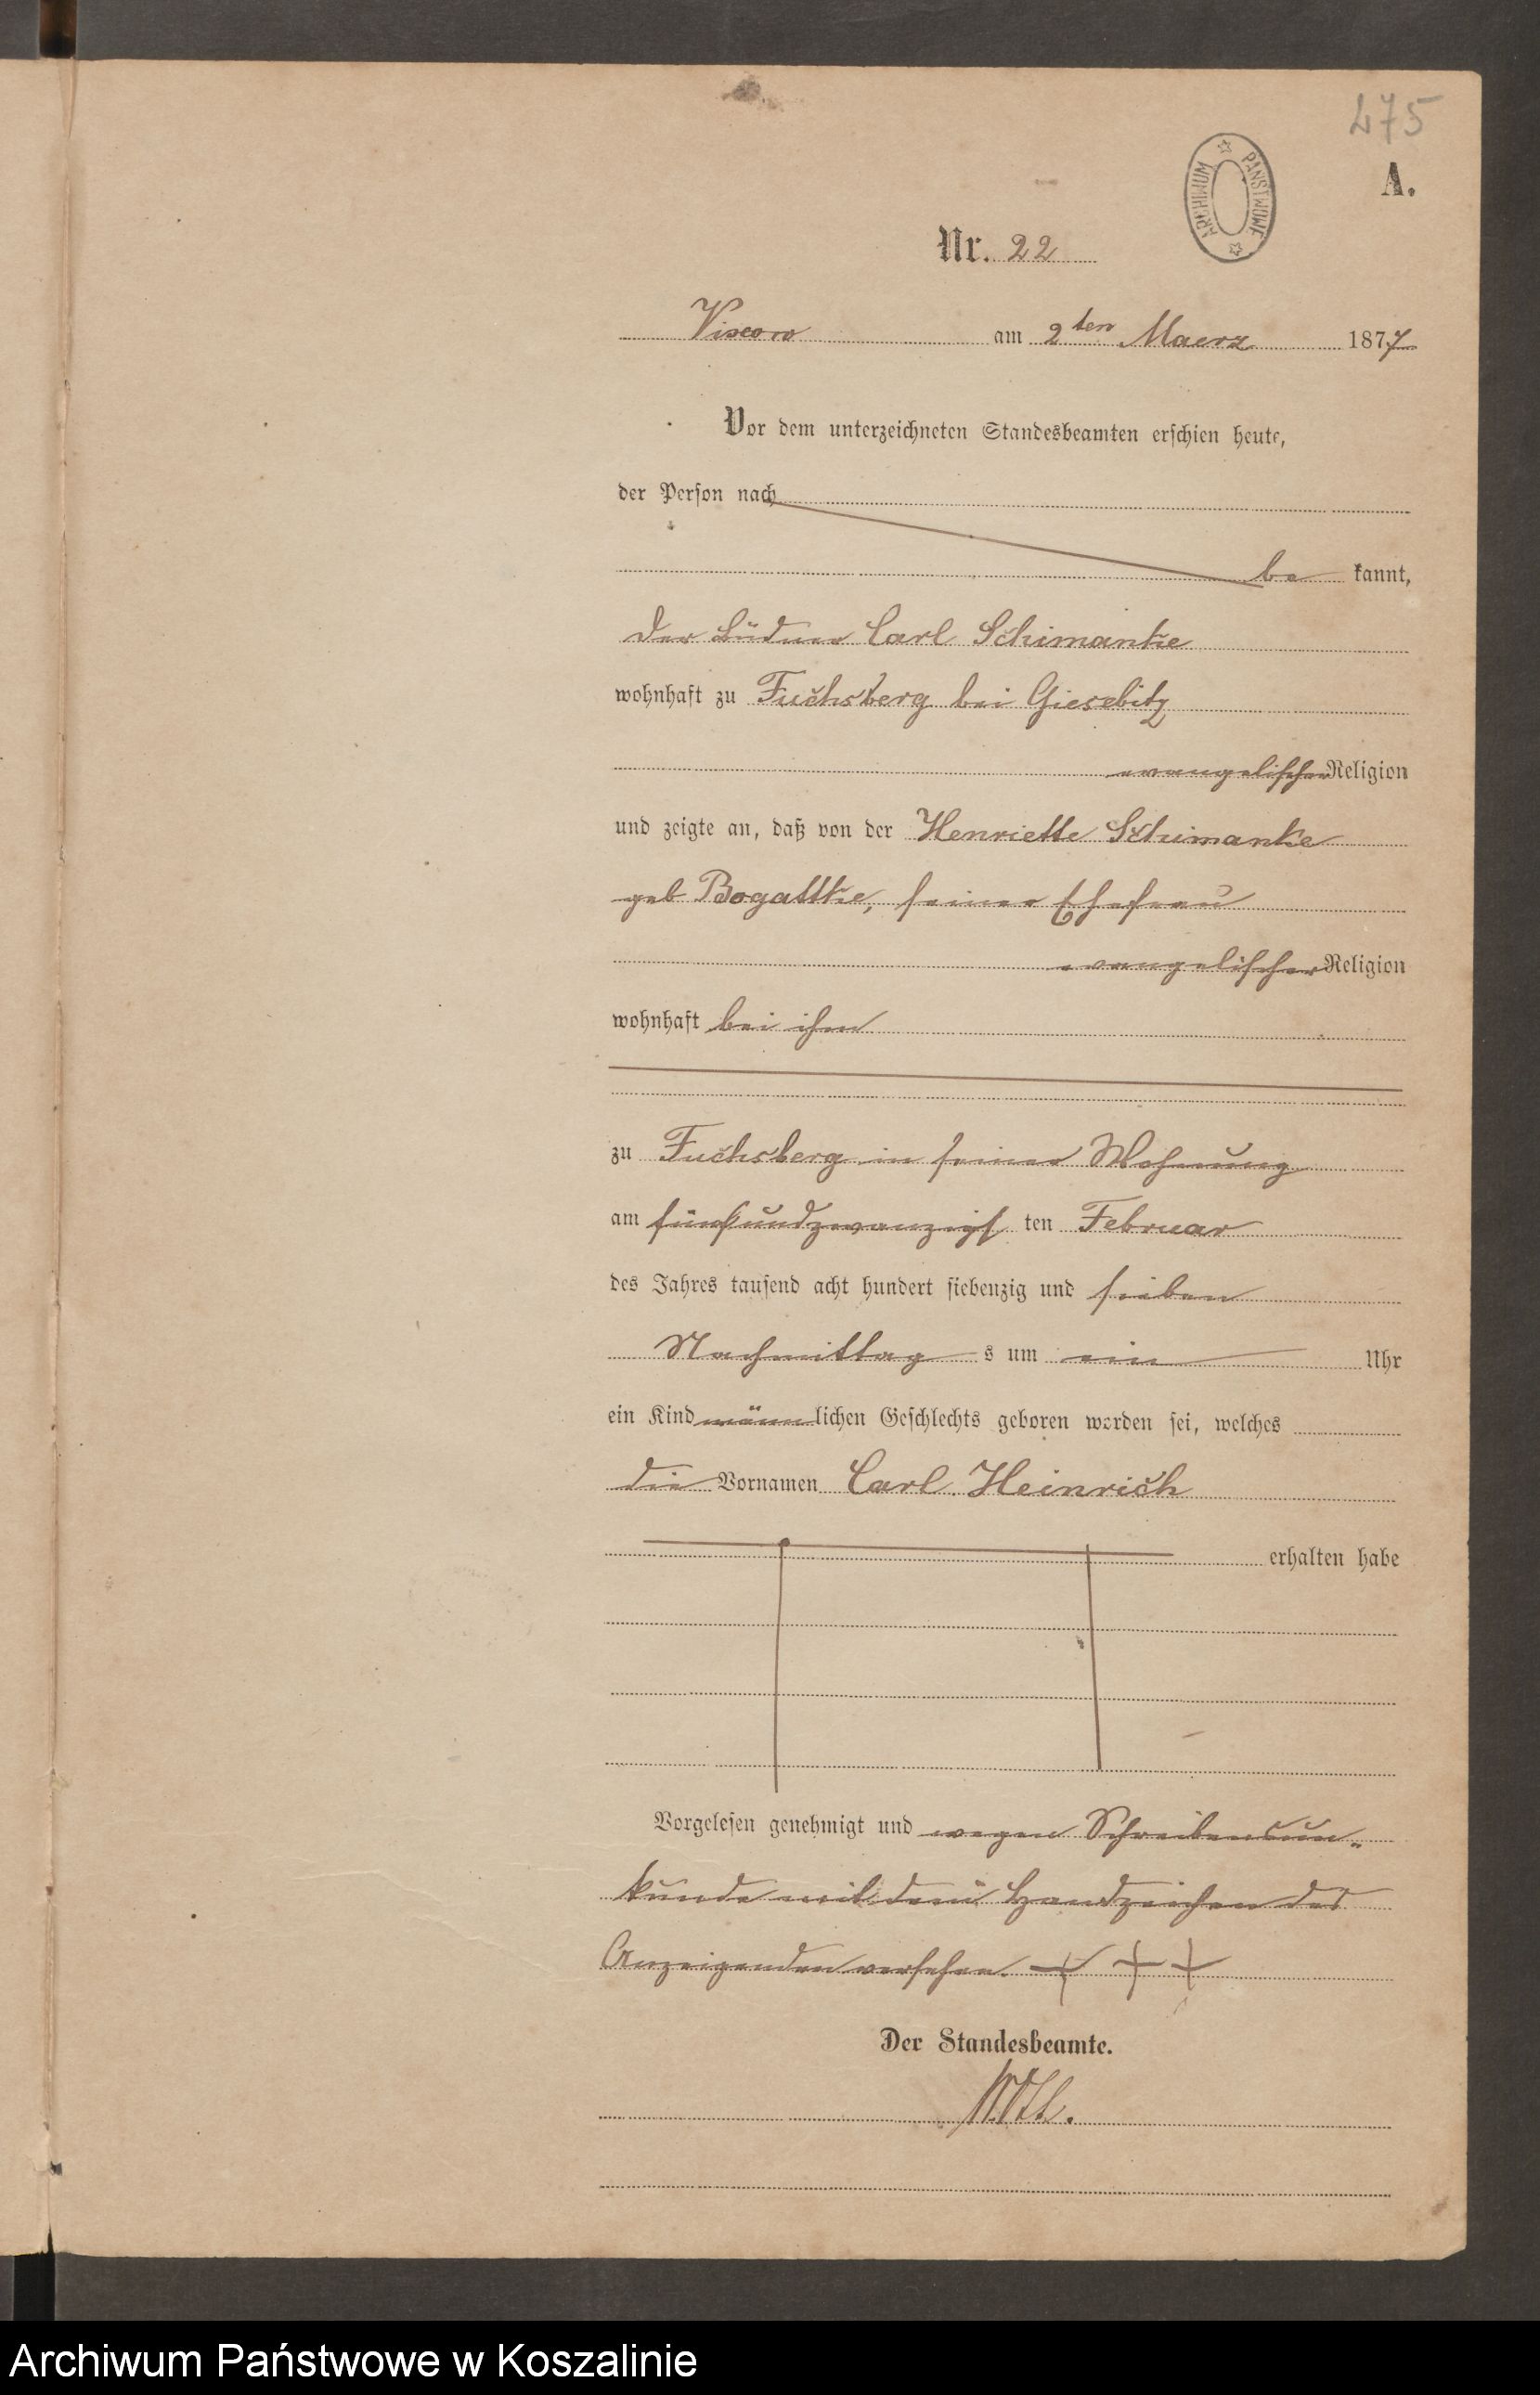 475
A.
ARCHIWUM PAŃSTWOWE
Nr. 22
Vixow am 2ten Maerz 1877
Vor dem unterzeichneten Standesbeamten erschien heute,
der Person nach
be kannt,
der Büdner Carl Schimanke
wohnhaft zu Fuchsberg bei Giesebitz
evangelischer Religion
und zeigte an, daß von der Henriette Schimanke
geb Bogattke, seiner Ehefrau
evangelischer Religion
wohnhaft bei ihm
zu Fuchsberg in seiner Wohnung
am fünfundzwanzigs ten Februar
des Jahres tausend acht hundert siebenzig und sieben
Nachmittag s um ein Uhr
ein Kind männ lichen Geschlechts geboren worden sei, welches
die Vornamen Carl Heinrich
erhalten habe
Vorgelesen genehmigt und wegen Schreibensun-
kunde mit dem Handzeichen des
Anzeigenden versehen. + + +
Der Standesbeamte.
Archiwum Państwowe w Koszalinie